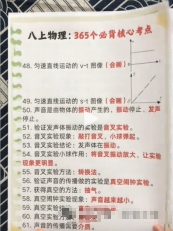 八上物理：365个必背核心考点
48. 匀速直线运动的 s-t 图像（会画）
49. 匀速直线运动的 v-t 图像（会画）
50. 声音是由物体的振动产生的，振动停止，发声停止。
51. 验证发声体振动的实验是音叉实验。
52. 音叉实验现象：敲打音叉，小球弹起。
53. 音叉实验结论：发声体在振动。
54. 音叉实验小球作用：将音叉振动放大，让实验现象更明显。
55. 音叉实验方法：转换法。
56. 验证声音的传播的实验是真空闹钟实验。
57. 获得真空的方法：抽气。
58. 真空实验现象：声音越来越小。
59. 真空实验
60. 真空实验方
61. 声音的传播需要介质。